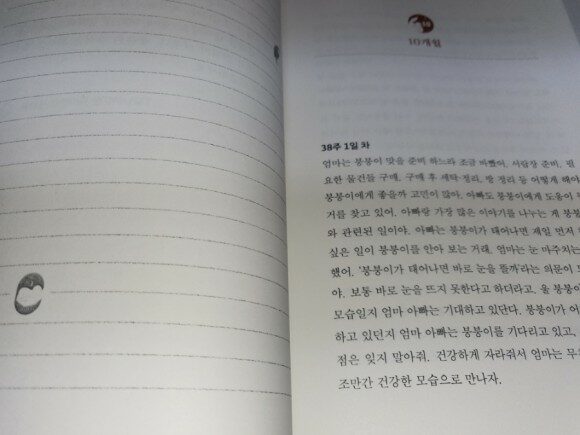 10
10개월
38주 1일 차
엄마는 봉봉이 맞을 준비 하느라 조금 바빴어. 서랍장 준비, 필
요한 물건들 구매, 구매 후 세탁 정리, 방 정리 등 어떻게 해야
봉봉이에게 좋을까 고민이 많아. 아빠도 봉봉이에게 도움이
거를 찾고 있어. 아빠랑 가장 많은 이야기를 나누는 게 봉봉
와 관련된 일이야. 아빠는 봉봉이가 태어나면 제일 먼저
싶은 일이 봉봉이를 안아 보는 거래. 엄마는 눈 마주치는
했어. '봉봉이가 태어나면 바로 눈을 뜰까'라는 의문이
야. 보통 바로 눈을 뜨지 못한다고 하더라고. 울 봉봉이
모습일지 엄마 아빠는 기대하고 있단다. 봉봉이가 어
하고 있던지 엄마 아빠는 봉봉이를 기다리고 있고,
점은 잊지 말아줘. 건강하게 자라줘서 엄마는 무
조만간 건강한 모습으로 만나자.